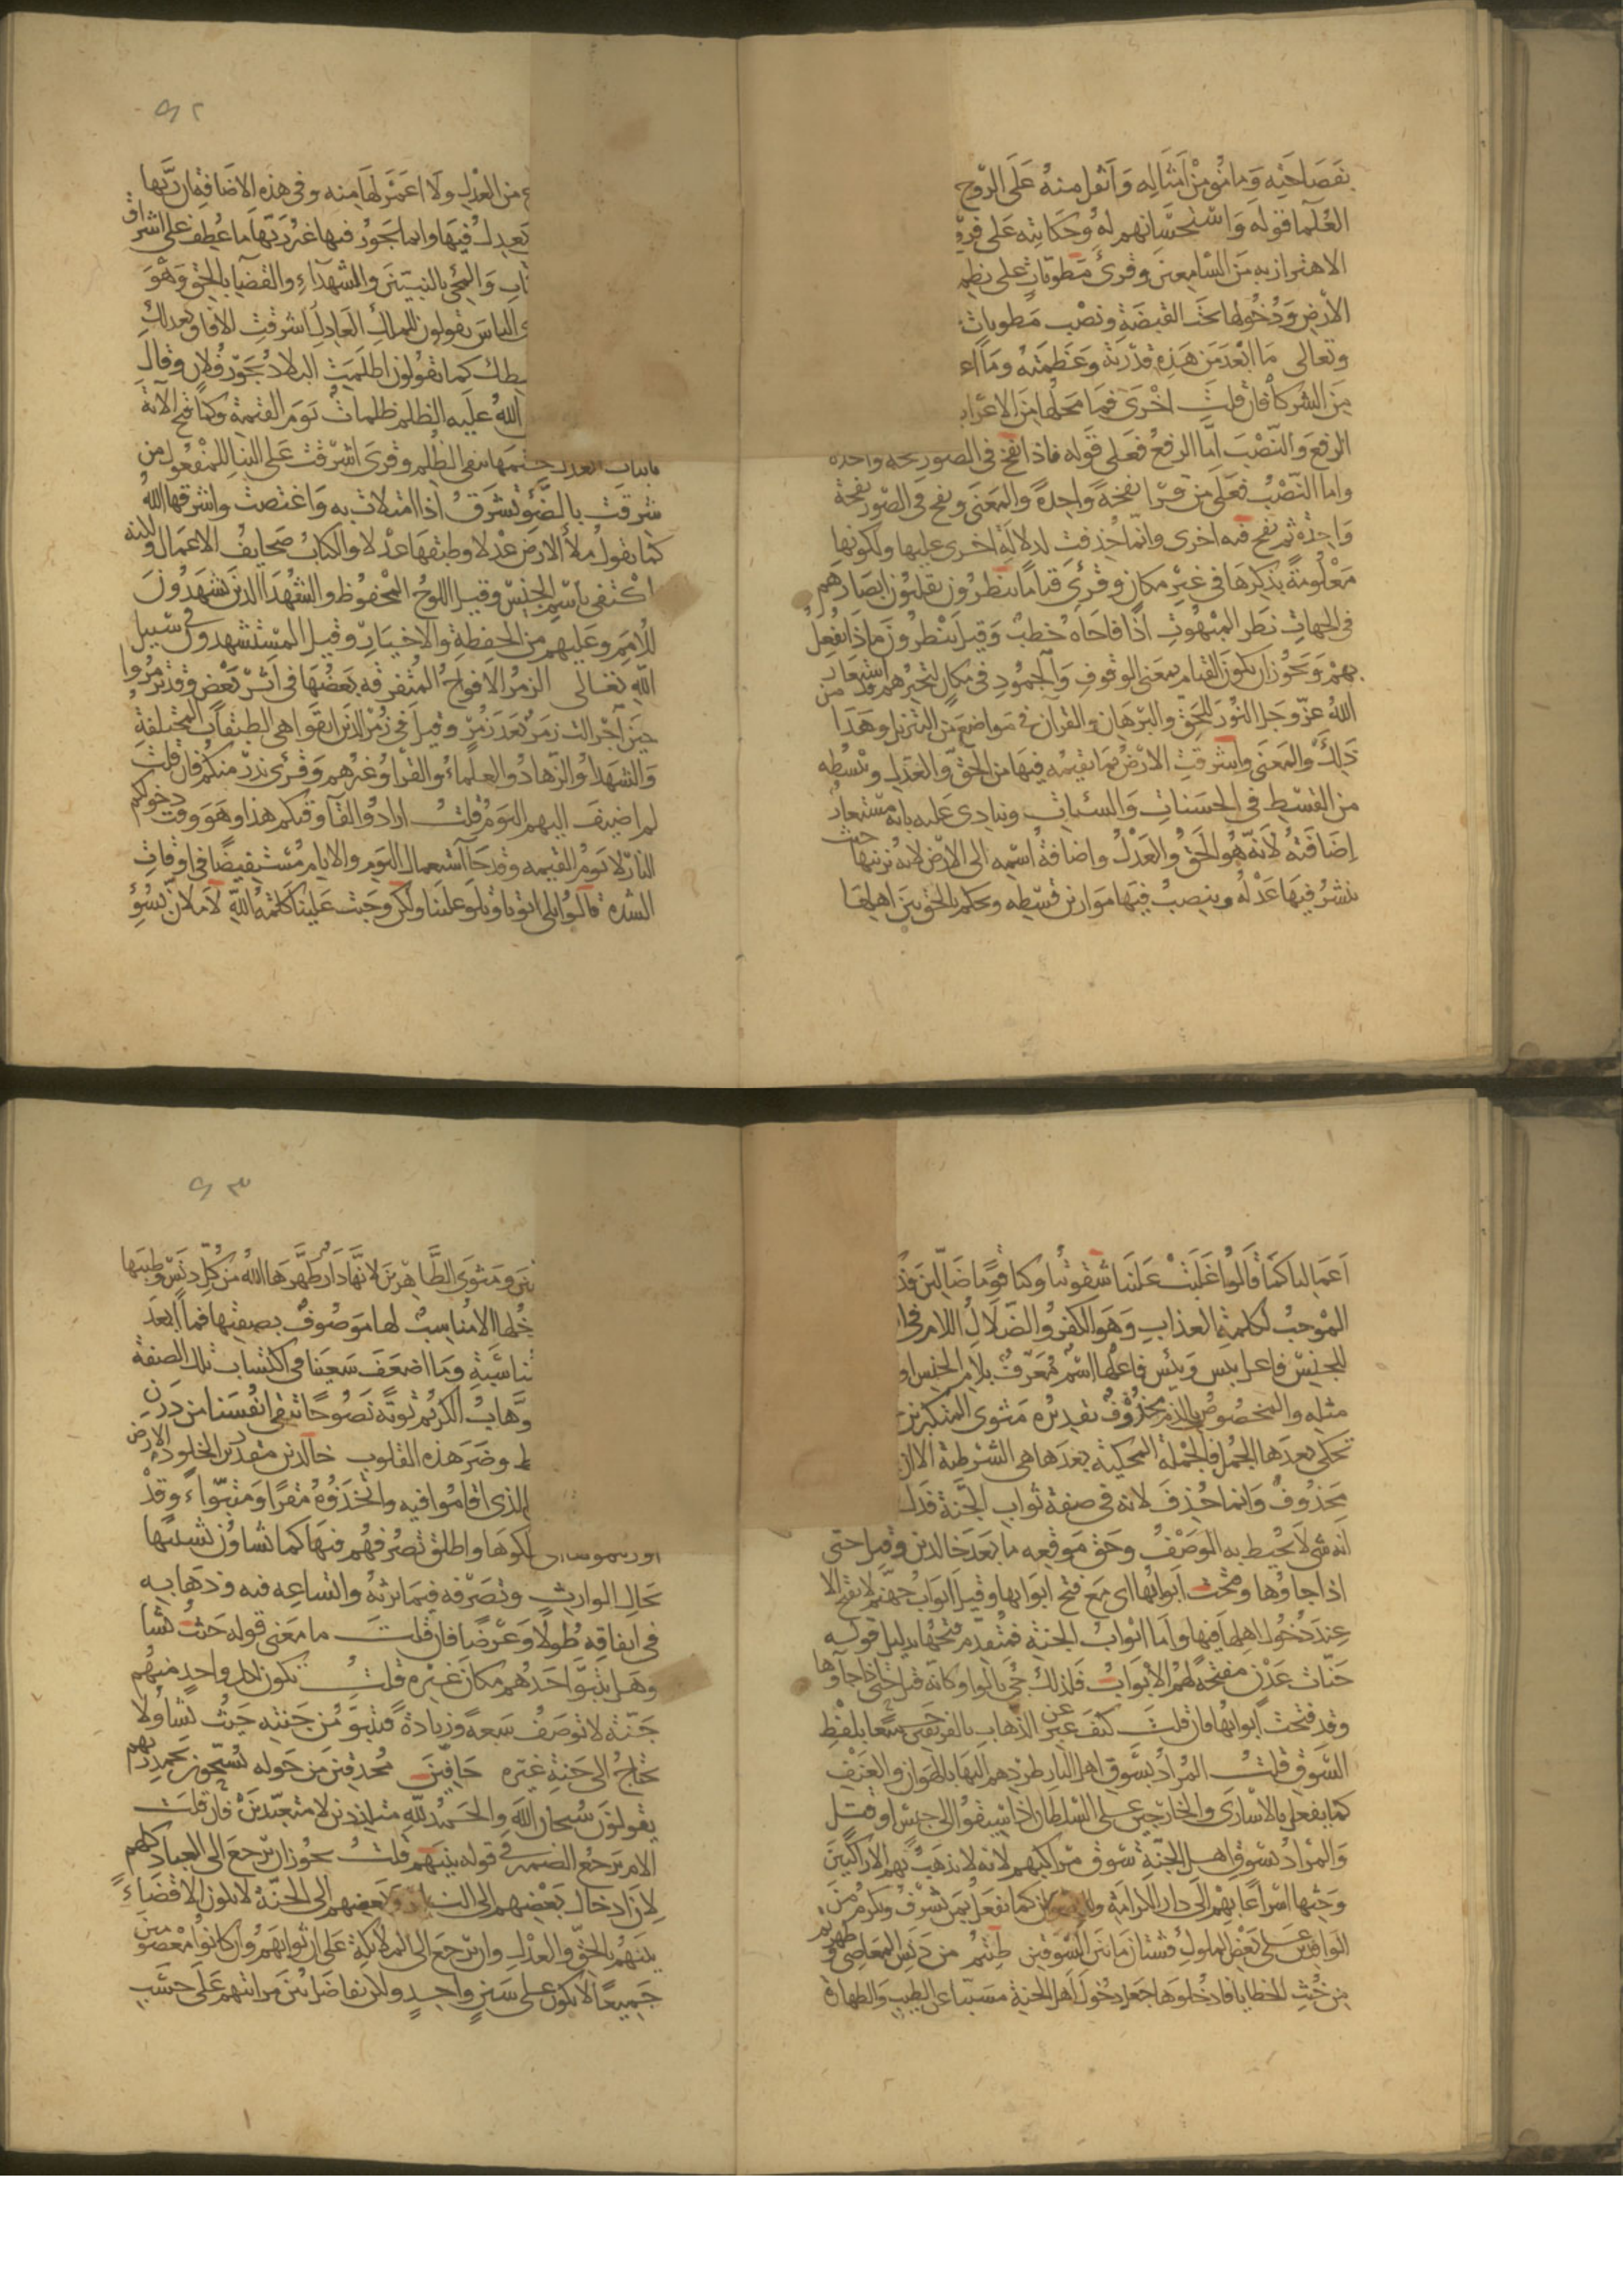 بفصاحته وما نمو من امثاله واثقل منه على الروح
العلما قوله واستحسانهم له وحكايته على فروع
الاهتزاز به من السامعين وقرئ مطويات على نظم
الارض ودخولها تحت القبضة ونصب مطويات
وتعالى ما ابعد من هذه قدرته وعظمته وما ا
من الشركا فان قلت اخرى فما محلها من الاعراب
الرفع والنصب اما الرفع فعلى قوله فاذا نفخ في الصور نفخة واحدة
واما النصب فعلى من قرا نفخة واحدة والمعنى ونفخ في الصور نفخة
واحدة ثم نفخ فيه اخرى وانما حذفت لدلالة اخرى عليها ولكونها
معلومة بذكرها في غير مكان وقرئ قياما ينظرون يقلبون ابصارهم
في الجهات نظر المبهوت اذا فاجاه خطب وقيل ينظرون ماذا يفعل
بهم ويجوز ان يكون القيام بمعنى الوقوف والجمود في مكان لتحيرهم قد استعار
الله عز وجل النور للحق والبرهان والقران في مواضع من التنزيل وهذا من
ذلك والمعنى واشرقت الارض بما يقيمه فيها من الحق والعدل ويبسطه
من القسط في الحسنات والسيئات وينادى عليه بانه مستعار
اضافته لانه هو الحق والعدل واضافة اسمه الى الارض لانه يزينها حيث
ينشر فيها عدله وينصب فيها موازين قسطه ويحكم بالحق بين اهلها
٩٢
من العدل ولا اعمر لها منه وفي هذه الاضافة ان ربها
يعدل فيها وانما يجور فيها غير ربها ما عطف على اشراق
تاب والمجئ بالنبيين والشهداء والقضا بالحق وهو
الناس يقولون للملك العادل اشرقت الافاق بعدلك
سطك كما يقولون اظلمت البلاد بجور فلان وقال
الله عليه الظلم ظلمات يوم القيمة وكما فتح الآية
باثبات العدل ختمها بنفي الظلم وقرى اشرقت على البنا للمفعول من
شرقت بالضوء تشرق اذا امتلات به واغتصت واشرقها الله
كما تقول ملأ الارض عدلا وطبقها عدلا والكتاب صحايف الاعمال ولكنه
اكتفى باسم الجنس وقيل اللوح المحفوظ والشهدا الذين يشهدون
للامم وعليهم من الحفظة والاخيار وقيل المستشهدون في سبيل
الله تعالى الزمر الافواج المتفرقة بعضها في اثر بعض وقد تزمروا
حتى احزالت زمر بعد زمر وقيل في زمر الذين اتقوا هي الطبقات المختلفة
والشهدا والزهاد والعلماء والقرا وغيرهم وقرئ نذر منكم فان قلت
لم اضيف اليهم اليوم قلت ارادوا لقآ وقتكم هذا وهو وقت دخولكم
النار لا يوم القيمه وقد جآ استعمال اليوم والايام مستفيضا في اوقات
الشدة قالوا بلى اتونا وتلوا علينا ولكن وجبت علينا كلمة الله لاملان بسوء
اعمالنا كما قالوا غلبت علينا شقوتنا وكنا قوما ضالين فذ
الموجب لكلمة العذاب وهو الكفر والضلال اللام في ا
للجنس فاعل بيس وبئس فاعلها اسم معرف بلام الجنس او
مثله والمخصوص بالذم محذوف تقديره مثوى المتكبرين
تحكى بعدها الجمل فالجملة المحكية بعدها هي الشرطية الا ان
محذوف وانما حذف لانه في صفة ثواب الجنة فدل
انه شي لا يحيط به الوصف وحق موقعه ما بعد خالدين وقيل حتى
اذا جاوها وفتحت ابوابها اي مع فتح ابوابها وقيل ابواب جهنم لا تفتح الا
عند دخول اهلها فيها واما ابواب الجنة فمتقدم فتحها بدليل قوله
جنات عدن مفتحة لهم الابواب فلذلك جئ بالواو وكانه قيل حتى اذا جاوها
وقد فتحت ابوابها فان قلت كيف عبر عن الذهاب بالفريقين جميعا بلفظ
السوق قلت المراد بسوق اهل النار طردهم اليها بالهوان والعنف
كما يفعل بالاسارى والخارجين على السلطان اذا سيقوا الى حبس او قتل
والمراد بسوق اهل الجنة سوق مراكبهم لانه لا يذهب بهم الا راكبين
وحثها اسراعا بهم الى دار الكرامة والرضوان كما يفعل بمن يشرف ويكرم من
الوافدين على بعض الملوك فشتان ما بين السوقين طبتم من دنس المعاصي وطهرتم
من خبث الخطايا فادخلوها جعل دخول اهل الجنة مسببا عن الطيب والطهارة
٩٣
بين ومثوى الطاهرين لانها دار طهرها الله من كل دنس وطيبها
خلها الا مناسب لها موصوف بصفتها فما ابعد
ناسبة وما اضعف سعينا في اكتساب تلك الصفة
وهاب الكريم توبة نصوحا تنقي انفسنا من درن
ط وضر هذه القلوب خالدين مقدرين الخلود الارض
الذي اقاموا فيه واتخذوه مقرا ومتبوا وقد
كوها واطلق تصرفهم فيها كما يشاون تشبيها
بحال الوارث وتصرفه فيما يرثه واتساعه فيه وذهابه
في انفاقه طولا وعرضا فان قلت ما معنى قوله حيث نشا
وهل يتبوا احدهم مكان غيره قلت يكون لكل واحد منهم
جنة لا توصف سعة وزيادة فيتبوء من جنته حيث يشا ولا
يحتاج الى جنة غيره حافين محدقين من حوله يسبحون بحمد ربهم
يقولون سبحان الله والحمد لله متلذذين لا متعبدين فان قلت
الام يرجع الضمير في قوله بينهم قلت يجوز ان يرجع الى العباد كلهم
لان ادخال بعضهم الى النار وبعضهم الى الجنة لا يكون الا قضاء
بينهم بالحق والعدل وان يرجع الى الملائكة على ان ثوابهم وان كانوا معصومين
جميعا لا يكون على سنن واحد ولكن يفاضل بين مراتبهم على حسب